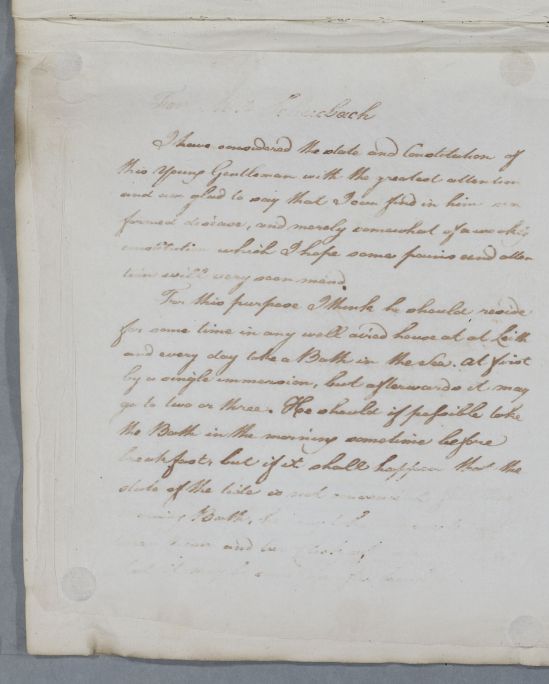 For Mr
I have considered the state and Constitution of
this Young Gentleman with the greatest attention
and am glad to say that I can find in him no
formed disease, and merely somewhat of a weakly
constitution which I hope some pains and atten
tion will very soon mend.
For this purpose I think he should reside
for some time in any well aired house at at Leith
and every day take a Bath in the Sea. at first
by a single immersion, but afterwards it may
go to two or three. He should if possible take
the Bath in the morning sometime before
breakfast, but if it shall happen that the
state of the tide is not
morning Bath, he
and